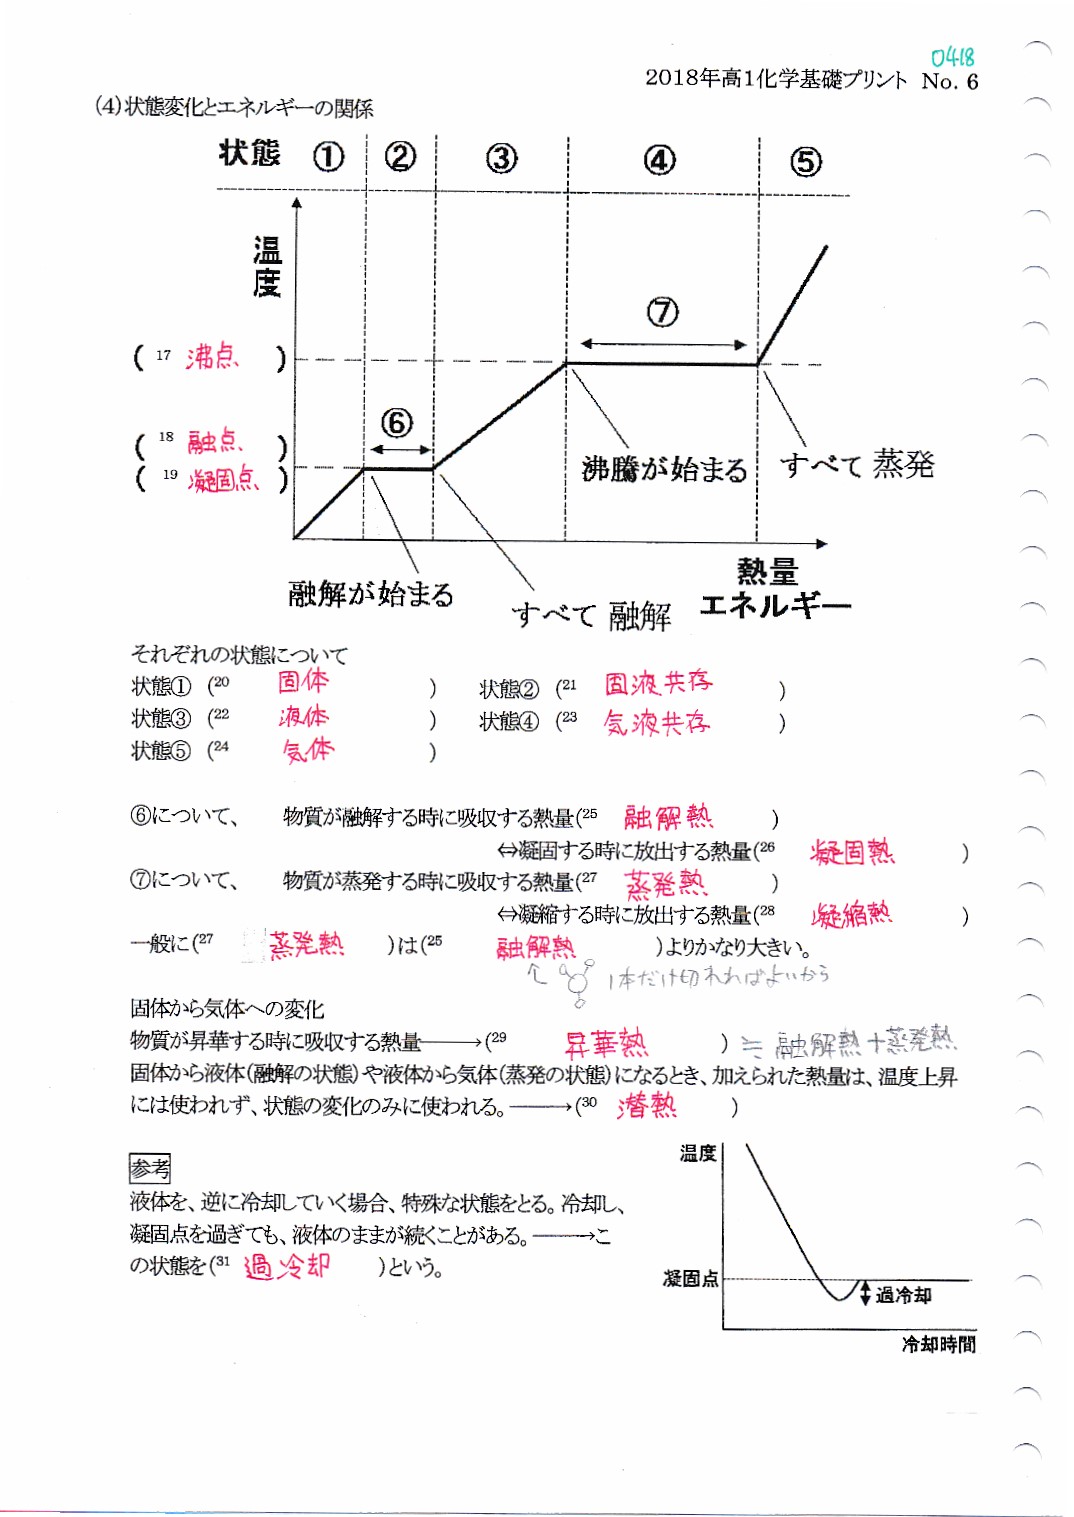 0418
2018年高1化学基礎プリント No. 6
(4)状態変化とエネルギーの関係
状態 ① ② ③ ④ ⑤
温度
⑦
( 17 沸点 )
⑥
( 18 融点 )
( 19 凝固点 )
沸騰が始まる すべて 蒸発
熱量
融解が始まる すべて 融解 エネルギー
それぞれの状態について
状態① (20 固体 ) 状態② (21 固液共存 )
状態③ (22 液体 ) 状態④ (23 気液共存 )
状態⑤ (24 気体 )
⑥について、 物質が融解する時に吸収する熱量(25 融解熱 )
⇔凝固する時に放出する熱量(26 凝固熱 )
⑦について、 物質が蒸発する時に吸収する熱量(27 蒸発熱 )
⇔凝縮する時に放出する熱量(28 凝縮熱 )
一般に(27 蒸発熱 )は(25 融解熱 )よりかなり大きい。
↑ 1本だけ切れればよいから
固体から気体への変化
物質が昇華する時に吸収する熱量――→(29 昇華熱 ) ≒ 融解熱+蒸発熱
固体から液体(融解の状態)や液体から気体(蒸発の状態)になるとき、加えられた熱量は、温度上昇
には使われず、状態の変化のみに使われる。――→(30 潜熱 )
参考
液体を、逆に冷却していく場合、特殊な状態をとる。冷却し、
凝固点を過ぎても、液体のままが続くことがある。――→こ
の状態を(31 過冷却 )という。
温度
凝固点
過冷却
冷却時間